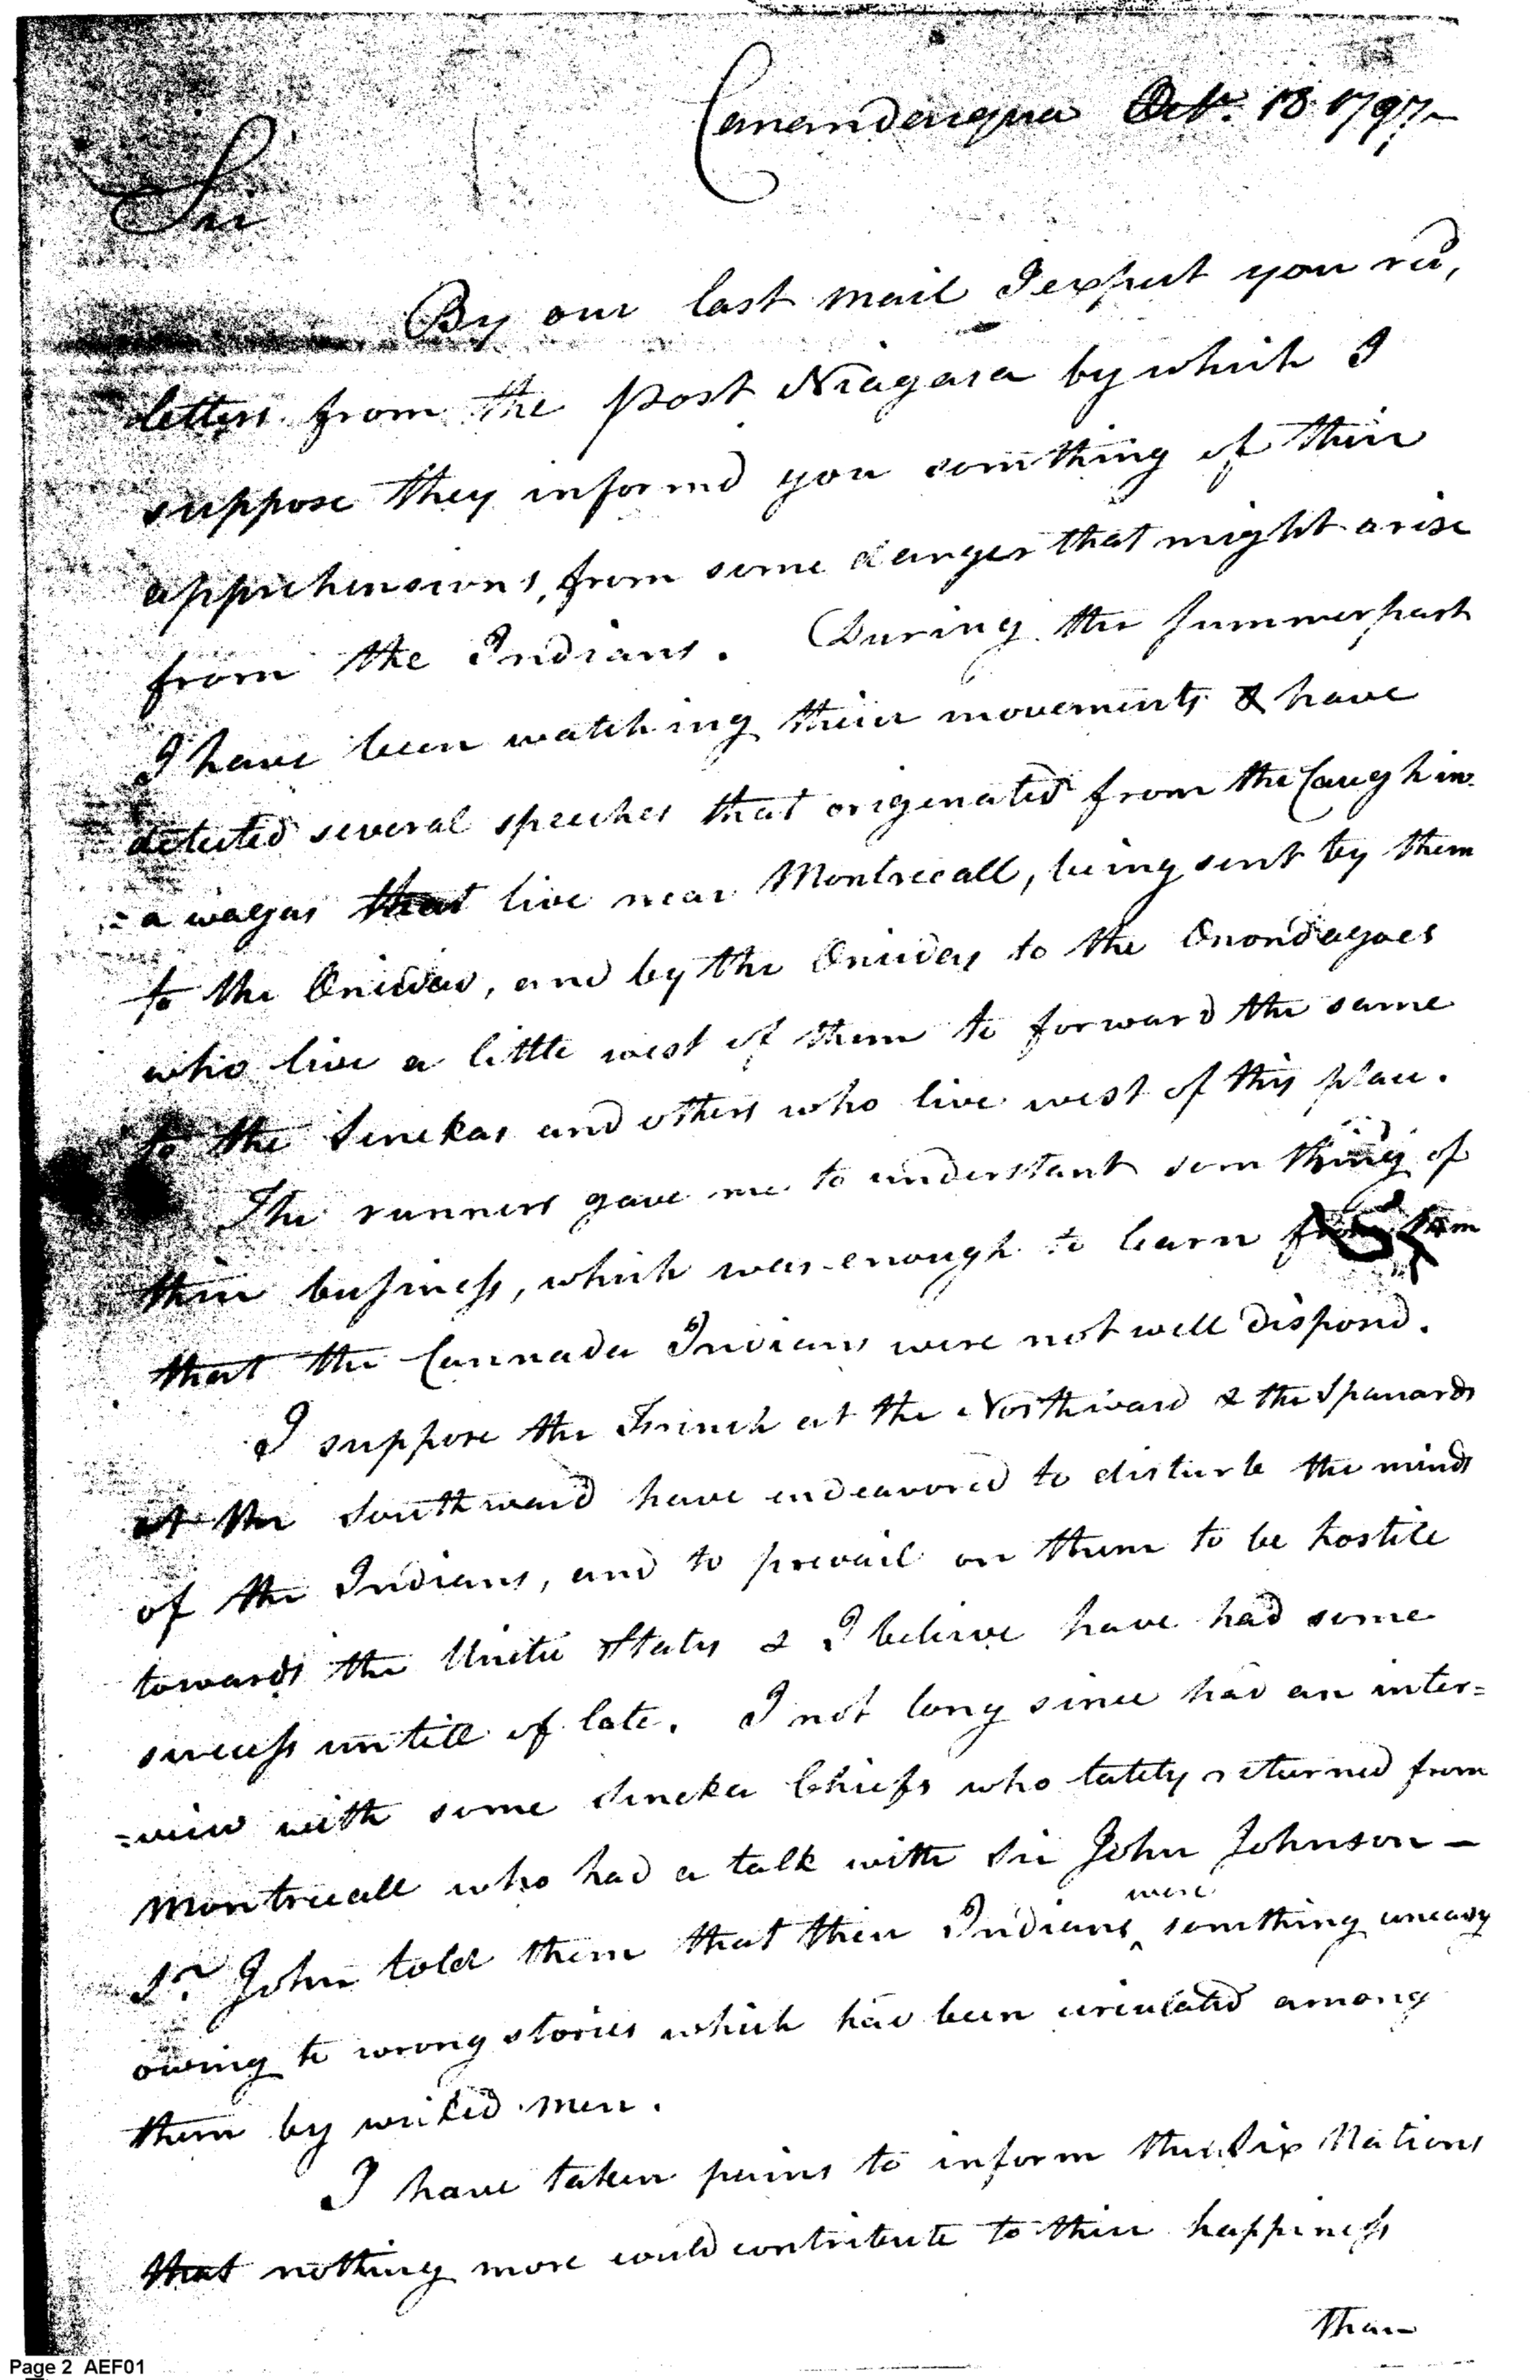 Canandaigua Octr. 18 1797
Sir
By our last mail I expect you recd,
letters from the post Niagara by which I
suppose they informd you somthing of their
apprehensions, from some danger that might arise
from the Indians. During the summer past
I have been watching their movements & have
detected several speeches that originated from the Caughin=
=a wagas that live near Montreeall, being sent by them
to the Oneidas, and by the Oneidas to the Onondagoes
who live a little west of them to forward the same
to the Senekas and others who live west of this place.
The runners gave me to understant somthing of
their business, which was enough to learn from them
that the Cannada Indians were not well disposd.
I suppose the French at the Northward & the Spanards
at the Southward have endeavored to disturb the minds
of the Indians, and to prevail on them to be hostile
towards the Unite States & I believe have had some
success untill of late. I not long since had an inter=
=view with some Seneka Chiefs who lately returned from
Montreeall who had a talk with Sir John Johnson —
Sr. John told them that their Indians were somthing uneasy
owing to wrong stories which had been circulated among
them by wicked men.
I have taken pains to inform the Six Nations
that nothing more could contribute to their happiness
than
Page 2 AEF01